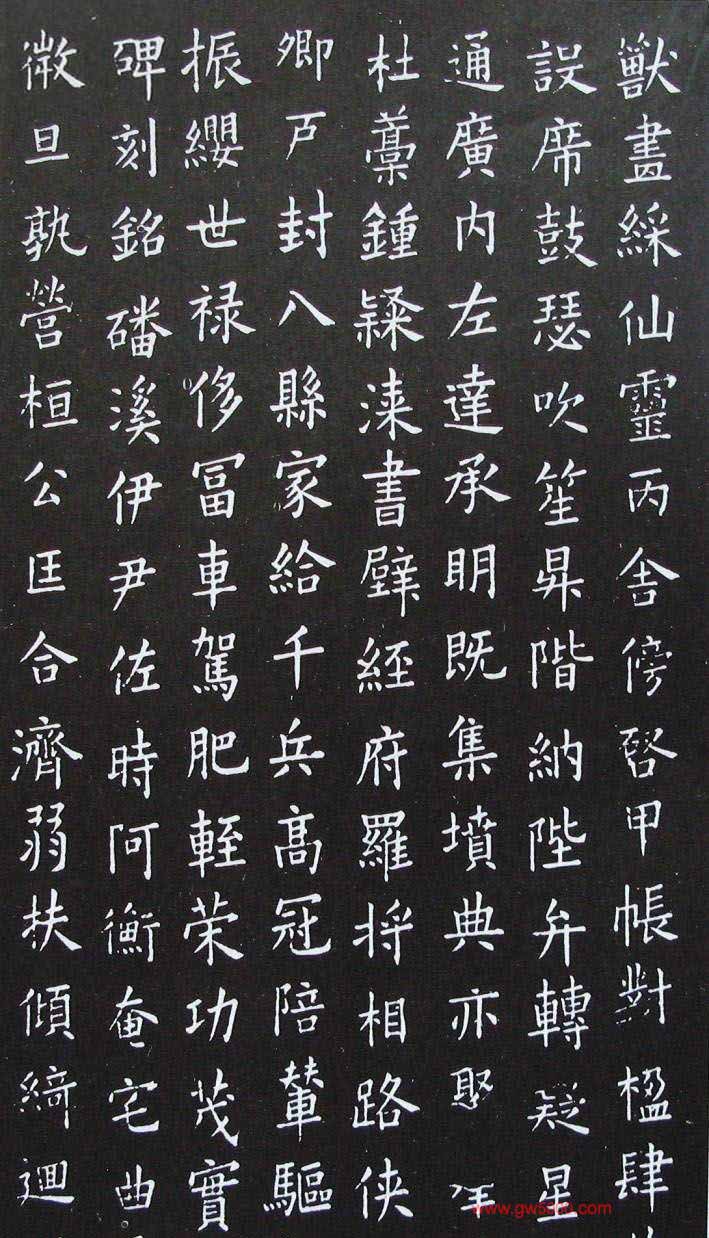 獸畫綵仙靈丙舍傍啓甲帳對楹肆
設席鼓瑟吹笙昇階納陛弁轉疑星
通廣内左達承明既集墳典亦聚
杜藁鍾隸漆書壁經府羅将相路侠
卿戸封八縣家給千兵髙冠陪輦驅
振纓世禄侈冨車駕肥輕荣功茂實
碑刻銘磻溪伊尹佐時阿衡奄宅曲
微旦孰營桓公匡合濟弱扶傾綺廻